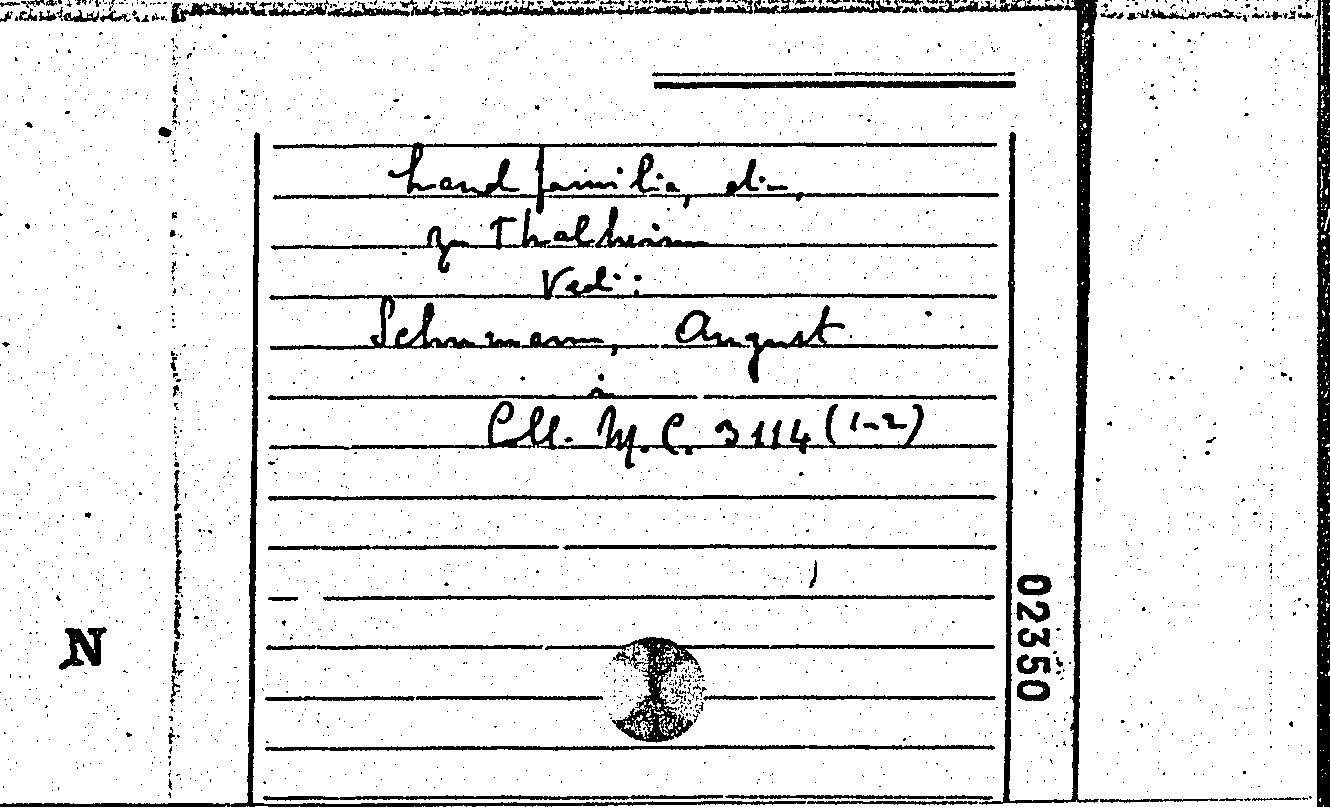 Landfamilia, die,
zu Thalheim
Vedi:
Schumann, August
in
Coll. M. C. 3114 (1-2)
02350
N